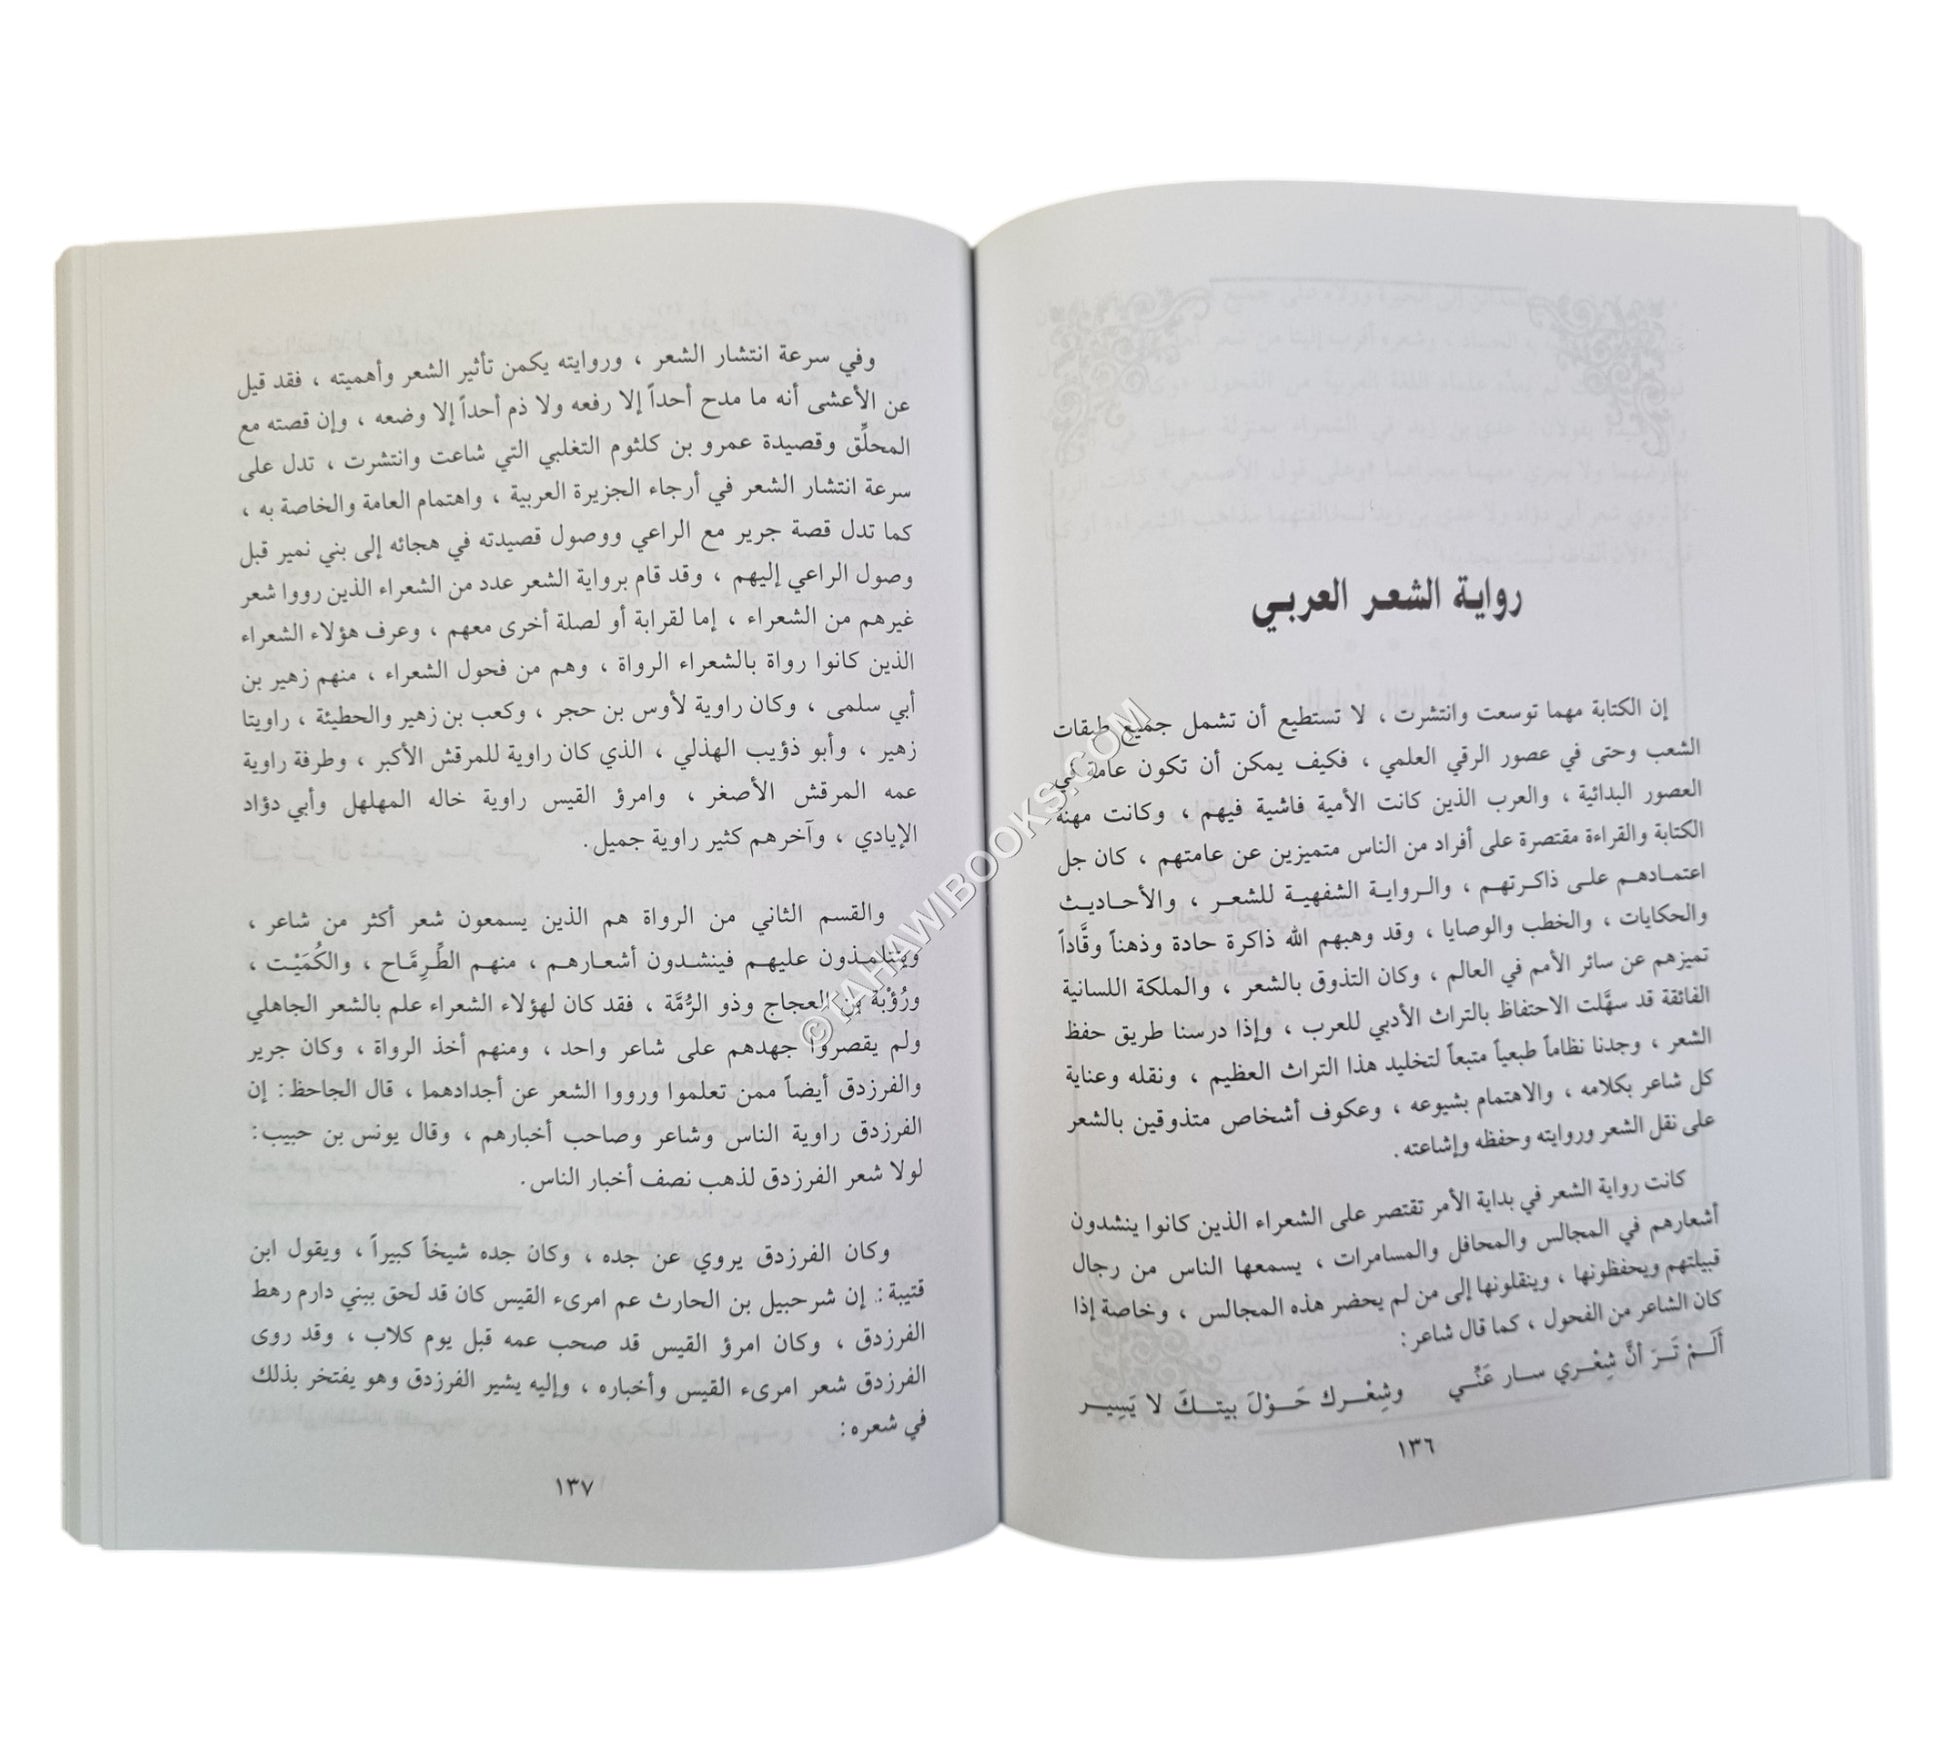 رواية الشعر العربي
إن الكتابة مهما توسعت وانتشرت ، لا تستطيع أن تشمل جميع طبقات
الشعب وحتى في عصور الرقي العلمي ، فكيف يمكن أن تكون عامة في
العصور البدائية ، والعرب الذين كانت الأمية فاشية فيهم ، وكانت مهنة
الكتابة والقراءة مقتصرة على أفراد من الناس متميزين عن عامتهم ، كان جل
اعتمادهم على ذاكرتهم ، والرواية الشفهية للشعر ، والأحاديث
والحكايات ، والخطب والوصايا ، وقد وهبهم الله ذاكرة حادة وذهناً وقَّاداً
تميزهم عن سائر الأمم في العالم ، وكان التذوق بالشعر ، والملكة اللسانية
الفائقة قد سهَّلت الاحتفاظ بالتراث الأدبي للعرب ، وإذا درسنا طريق حفظ
الشعر ، وجدنا نظاماً طبعياً متبعاً لتخليد هذا التراث العظيم ، ونقله وعناية
كل شاعر بكلامه ، والاهتمام بشيوعه ، وعكوف أشخاص متذوقين بالشعر
على نقل الشعر وروايته وحفظه وإشاعته .
كانت رواية الشعر في بداية الأمر تقتصر على الشعراء الذين كانوا ينشدون
أشعارهم في المجالس والمحافل والمسامرات ، يسمعها الناس من رجال
قبيلتهم ويحفظونها ، وينقلونها إلى من لم يحضر هذه المجالس ، وخاصة إذا
كان الشاعر من الفحول ، كما قال شاعر :
أَلَمْ تَرَ أنَّ شِعْري سار عَنِّي وشِعْرك حَوْلَ بيتكَ لا يَسِير
١٣٦
وفي سرعة انتشار الشعر ، وروايته يكمن تأثير الشعر وأهميته ، فقد قيل
عن الأعشى أنه ما مدح أحداً إلا رفعه ولا ذم أحداً إلا وضعه ، وإن قصته مع
المحلِّق وقصيدة عمرو بن كلثوم التغلبي التي شاعت وانتشرت ، تدل على
سرعة انتشار الشعر في أرجاء الجزيرة العربية ، واهتمام العامة والخاصة به ،
كما تدل قصة جرير مع الراعي ووصول قصيدته في هجائه إلى بني نمير قبل
وصول الراعي إليهم ، وقد قام برواية الشعر عدد من الشعراء الذين رووا شعر
غيرهم من الشعراء ، إما لقرابة أو لصلة أخرى معهم ، وعرف هؤلاء الشعراء
الذين كانوا رواة بالشعراء الرواة ، وهم من فحول الشعراء ، منهم زهير بن
أبي سلمى ، وكان راوية لأوس بن حجر ، وكعب بن زهير والحطيئة ، راويتا
زهير ، وأبو ذؤيب الهذلي ، الذي كان راوية للمرقش الأكبر ، وطرفة راوية
عمه المرقش الأصغر ، وامرؤ القيس راوية خاله المهلهل وأبي دؤاد
الإيادي ، وآخرهم كثير راوية جميل .
والقسم الثاني من الرواة هم الذين يسمعون شعر أكثر من شاعر ،
ويتتلمذون عليهم فينشدون أشعارهم ، منهم الطِّرِمَّاح ، والكُمَيْت ،
ورُؤْبة بن العجاج وذو الرُّمَّة ، فقد كان لهؤلاء الشعراء علم بالشعر الجاهلي
ولم يقصروا جهدهم على شاعر واحد ، ومنهم أخذ الرواة ، وكان جرير
والفرزدق أيضاً ممن تعلموا ورووا الشعر عن أجدادهما ، قال الجاحظ : إن
الفرزدق راوية الناس وشاعر وصاحب أخبارهم ، وقال يونس بن حبيب :
لولا شعر الفرزدق لذهب نصف أخبار الناس .
وكان الفرزدق يروي عن جده ، وكان جده شيخاً كبيراً ، ويقول ابن
قتيبة : إن شرحبيل بن الحارث عم امرىء القيس كان قد لحق ببني دارم رهط
الفرزدق ، وكان امرؤ القيس قد صحب عمه قبل يوم كلاب ، وقد روى
الفرزدق شعر امرىء القيس وأخباره ، وإليه يشير الفرزدق وهو يفتخر بذلك
في شعره :
١٣٧
©TAHAWIBOOKS.COM